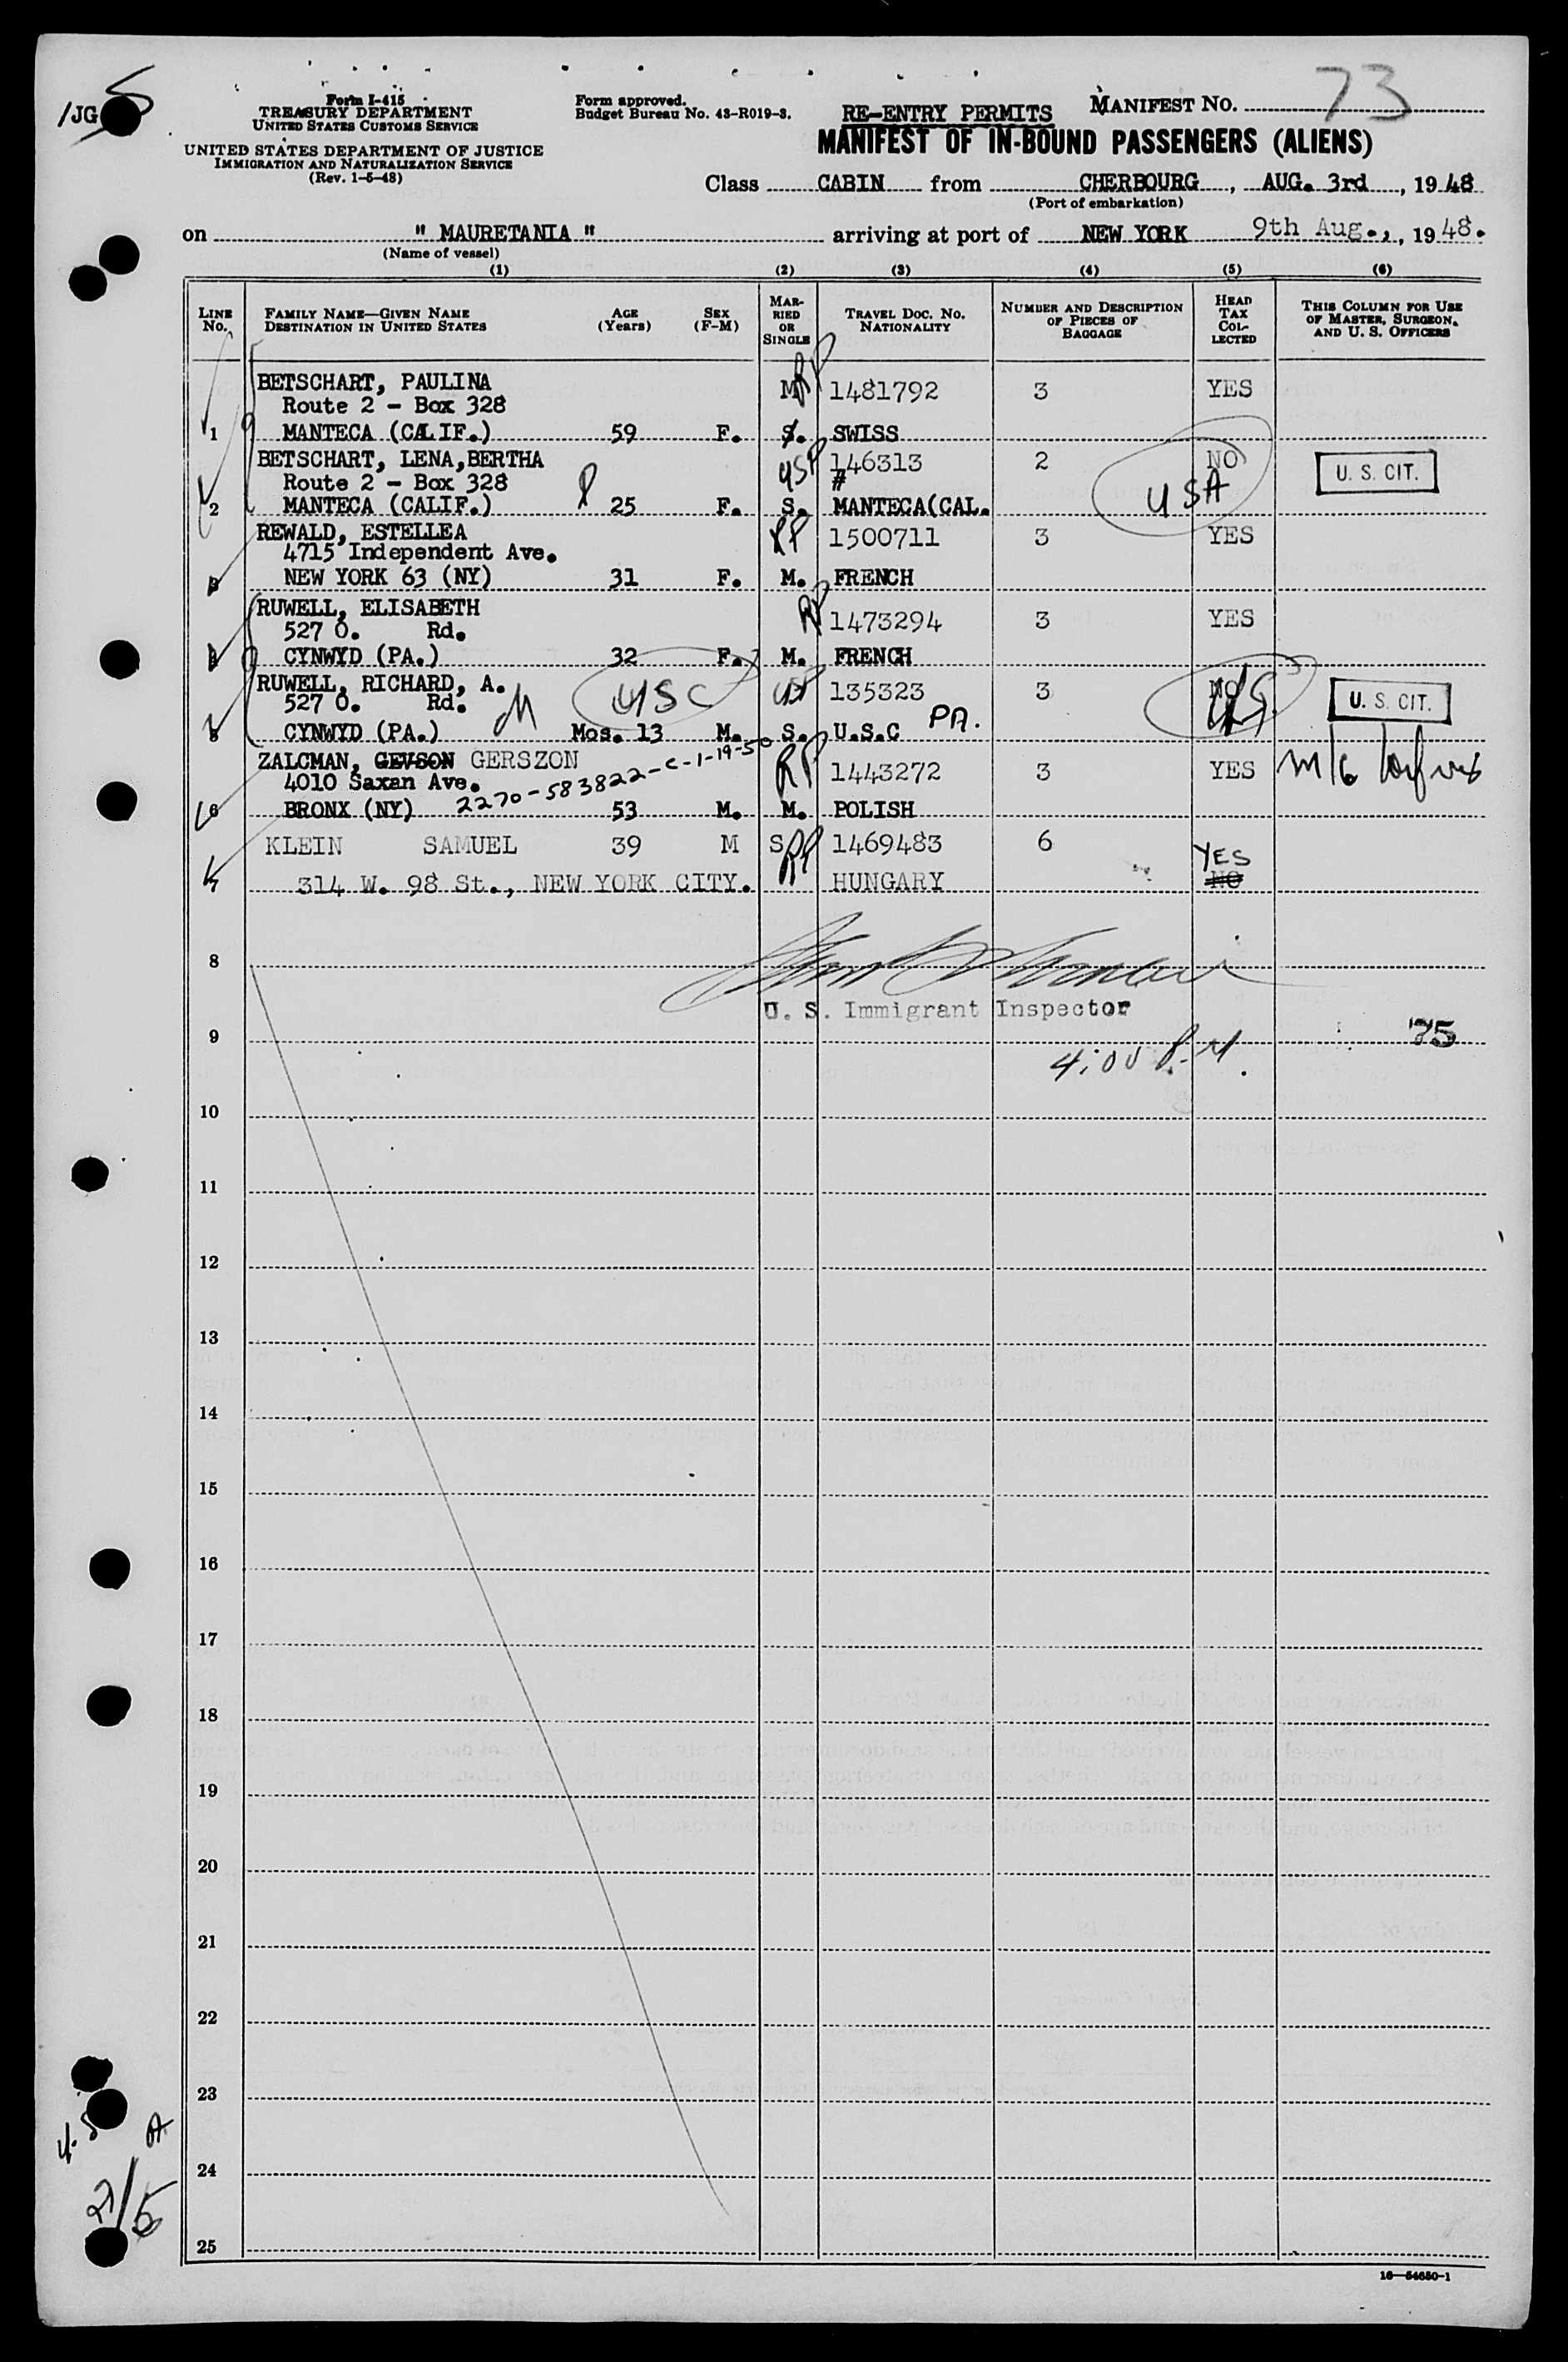 /JG 5
Form I-415
TREASURY DEPARTMENT
UNITED STATES CUSTOMS SERVICE
UNITED STATES DEPARTMENT OF JUSTICE
IMMIGRATION AND NATURALIZATION SERVICE
(Rev. 1-5-48)
Form approved.
Budget Bureau No. 43-R019-3.
RE-ENTRY PERMITS
MANIFEST No. 73
MANIFEST OF IN-BOUND PASSENGERS (ALIENS)
Class CABIN from CHERBOURG, AUG. 3rd, 1948
(Port of embarkation)
on " MAURETANIA " arriving at port of NEW YORK 9th Aug., 1948.
(Name of vessel)
(1) (2) (3) (4) (5) (6)
LINE No. FAMILY NAME—GIVEN NAME DESTINATION IN UNITED STATES AGE (Years) SEX (F-M) MARRIED OR SINGLE TRAVEL DOC. NO. NATIONALITY NUMBER AND DESCRIPTION OF PIECES OF BAGGAGE HEAD TAX COLLECTED THIS COLUMN FOR USE OF MASTER, SURGEON, AND U. S. OFFICERS
BETSCHART, PAULINA M RP 1481792 3 YES
Route 2 - Box 328
1 MANTECA (CALIF.) 59 F. S. SWISS
BETSCHART, LENA,BERTHA USP 146313 2 NO U. S. CIT.
Route 2 - Box 328 # USA
2 MANTECA (CALIF.) 25 F. S. MANTECA(CAL.
REWALD, ESTELLEA RP 1500711 3 YES
4715 Independent Ave.
3 NEW YORK 63 (NY) 31 F. M. FRENCH
RUWELL, ELISABETH RP 1473294 3 YES
527 O. Rd.
4 CYNWYD (PA.) 32 F. M. FRENCH
RUWELL, RICHARD, A. USC USP 135323 3 NO U. S. CIT.
527 O. Rd. M
5 CYNWYD (PA.) Mos. 13 M. S. U.S.C PA.
ZALCMAN, GEVSON GERSZON RP 1443272 3 YES
4010 Saxan Ave. 2270-583822-C-1-19-50
6 BRONX (NY) 53 M. M. POLISH
KLEIN SAMUEL 39 M S RP 1469483 6 YES
7 314 W. 98 St., NEW YORK CITY. HUNGARY NO
8
U. S. Immigrant Inspector
9 75
4:00 P.M.
10
11
12
13
14
15
16
17
18
19
20
21
22
23
24
2/5
25
16—54650-1